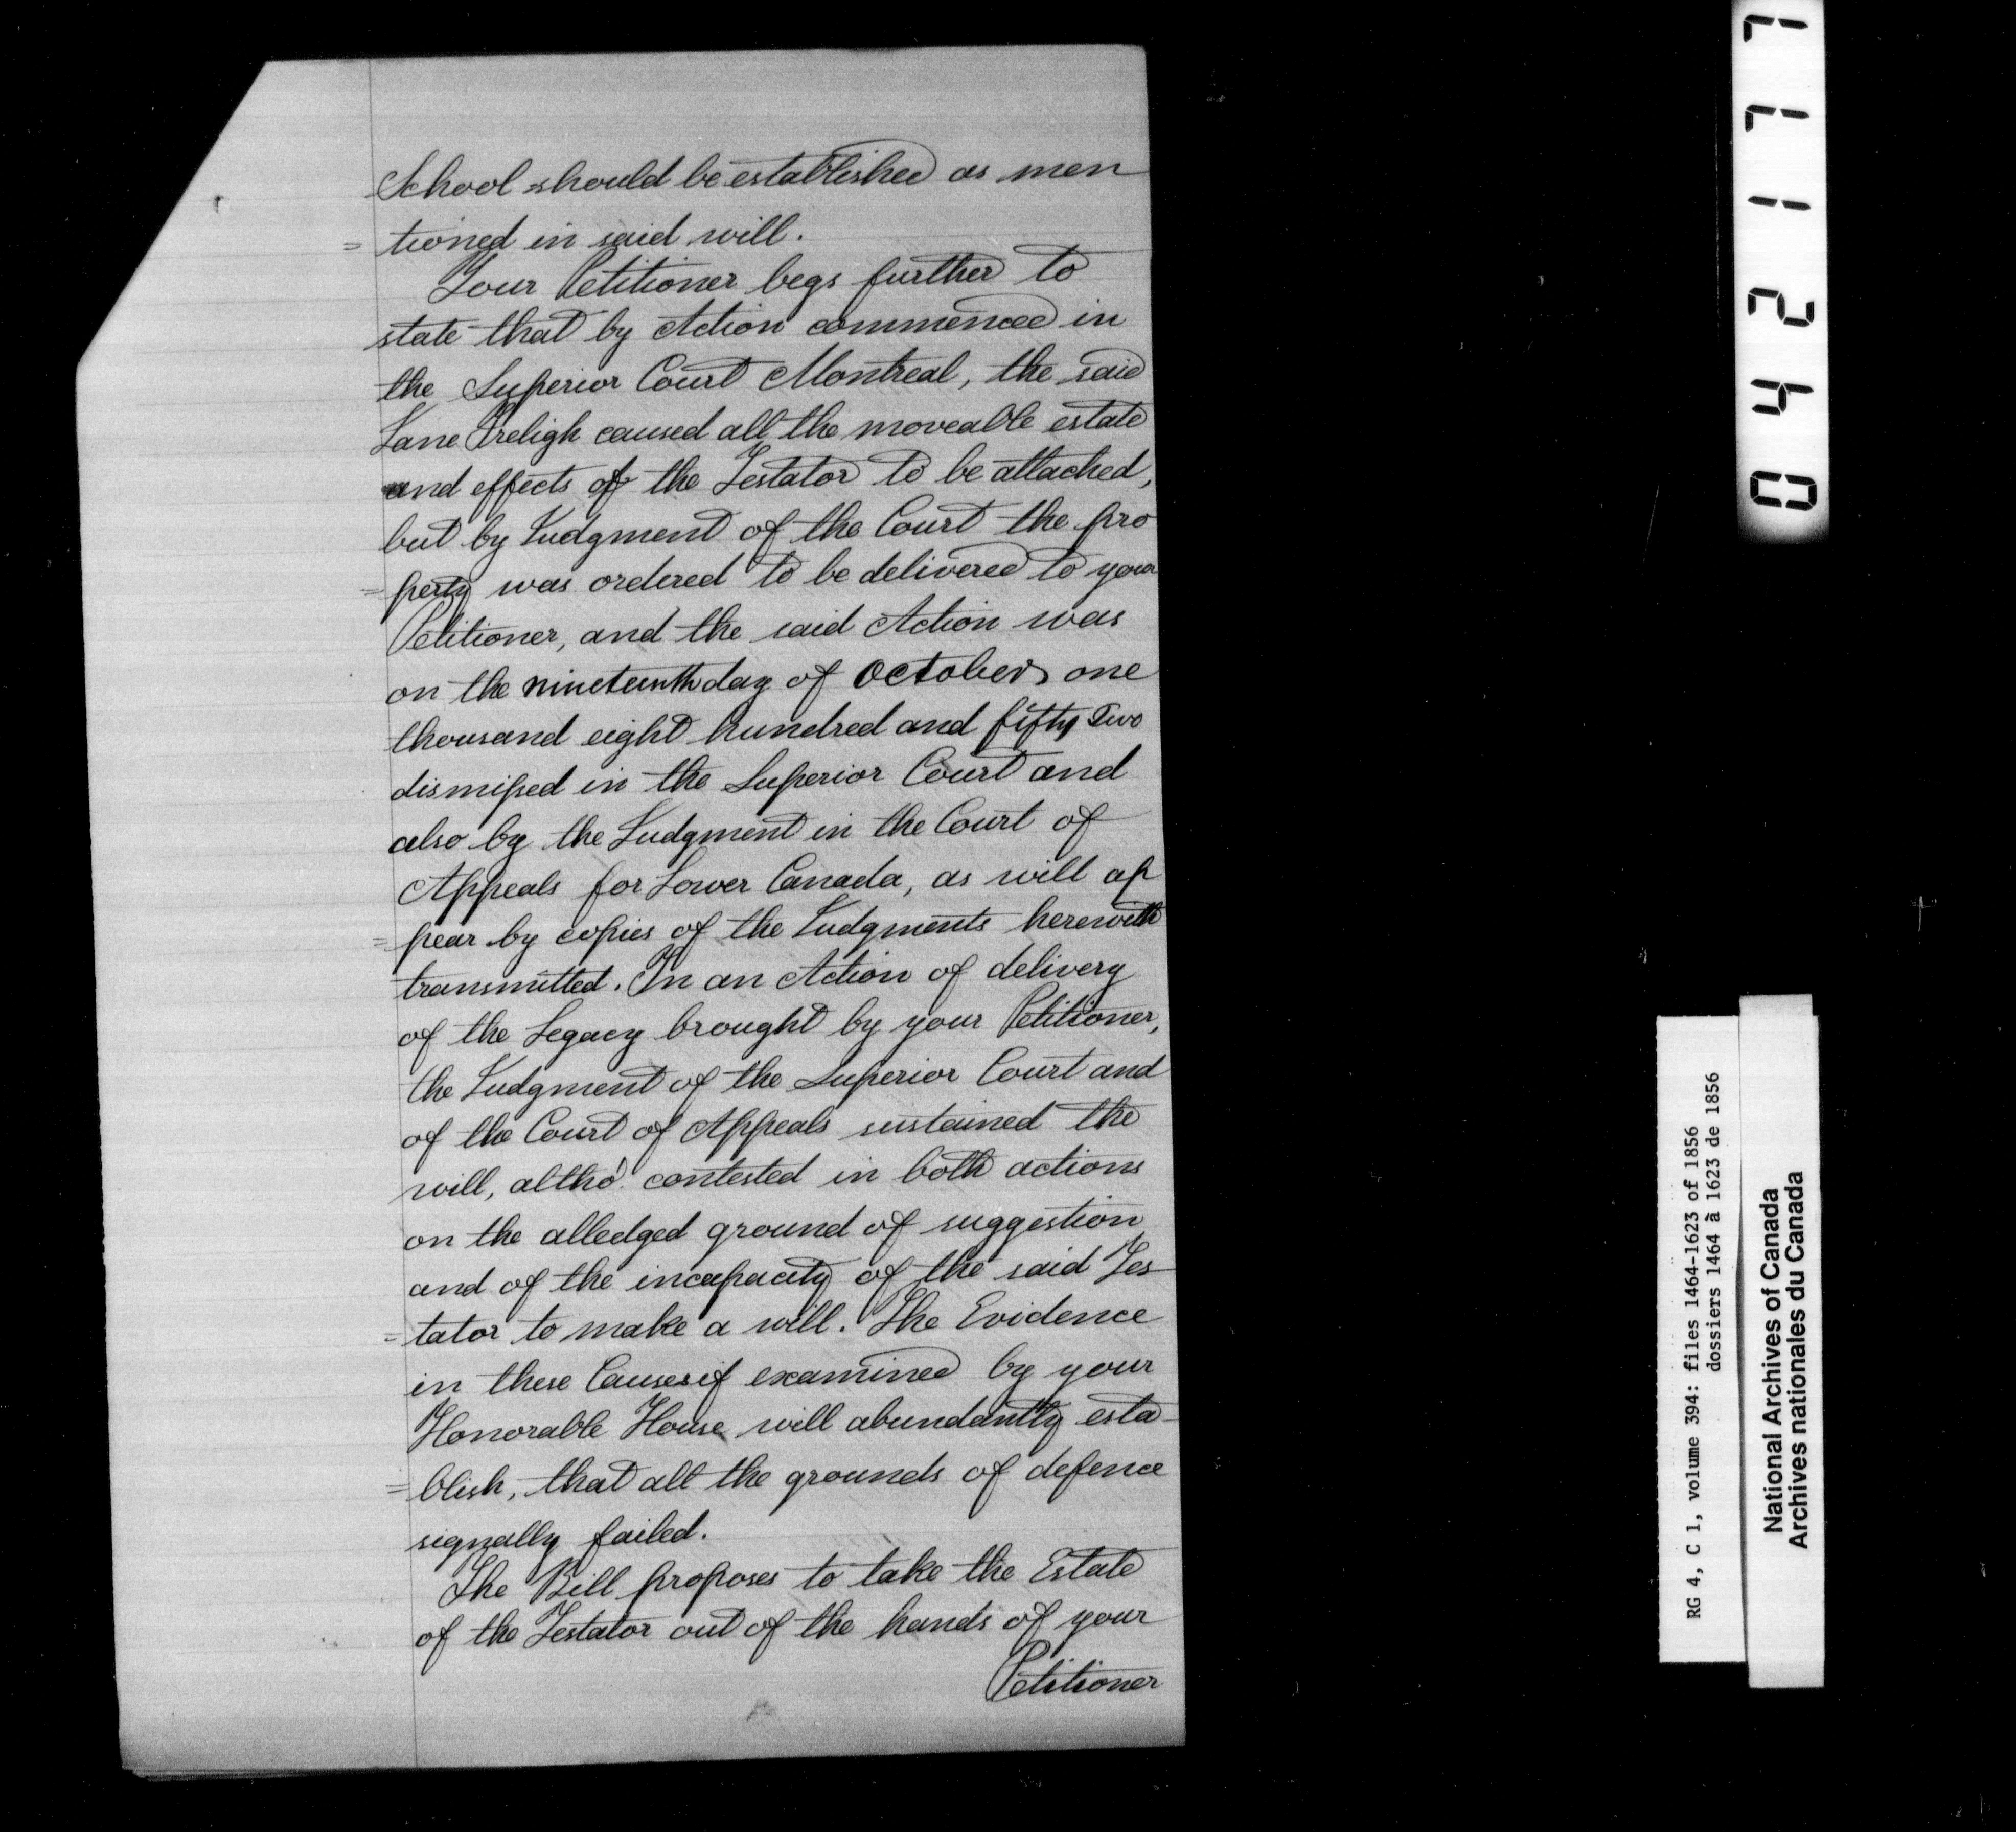 School should be established as men
= tioned in said will.
Your Petitioner begs further to
state that by Action commenced in
the Superior Court Montreal, the said
Jane Freligh caused all the moveable estate
and effects of the Testator to be attached,
but by Judgment of the Court the pro
= perty was ordered to be delivered to your
Petitioner, and the said Action was
on the nineteenth day of October one
thousand eight hundred and fifty Two
dismissed in the Superior Court and
also by the Judgment in the Court of
Appeals for Lower Canada, as will ap
= pear by copies of the Judgments herewith
transmitted. In an Action of delivery
of the Legacy brought by your Petitioner,
the Judgment of the Superior Court and
of the Court of Appeals sustained the
will, altho' contested in both actions
on the alledged ground of suggestion
and of the incapacity of the said Tes
= tator to make a will. The Evidence
in these Causes if examined by your
Honorable House will abundantly esta
= blish, that all the grounds of defence
signally failed.
The Bill proposes to take the Estate
of the Testator out of the hands of your
Petitioner
042177
RG 4, C 1, volume 394: files 1464-1623 of 1856
dossiers 1464 à 1623 de 1856
National Archives of Canada
Archives nationales du Canada